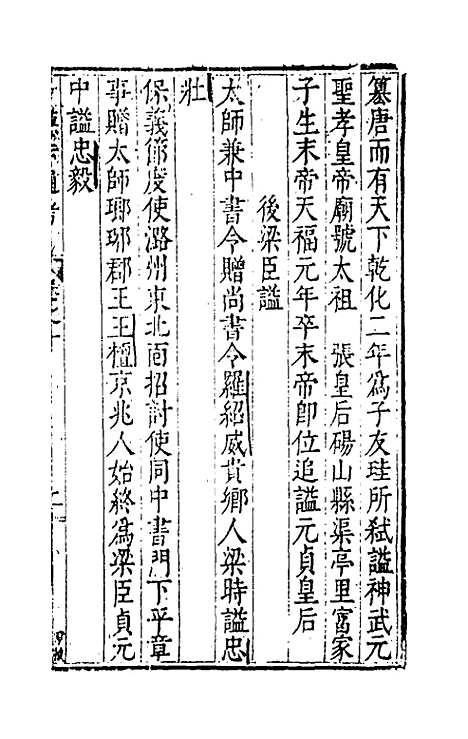 篡唐而有天下乾化二年為子友珪所弑謚神武元
聖孝皇帝廟號太祖　張皇后碭山縣渠亭里富家
子生末帝天福元年卒末帝即位追謚元貞皇后
後梁臣謚
太師兼中書令贈尚書令羅紹威貴鄉人梁時謚忠
壯
保義節度使潞州東北面招討使同中書門下平章
事贈太師瑯琊郡王王檀京兆人始終為梁臣貞元
中謚忠毅
通考